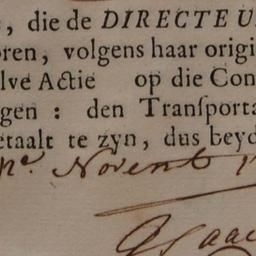 , die de DIRECTEU
oren, volgens haar origi
lve Actie op die Con
gen : den Transporta
etaalt te zyn, dus beyd
Novemb
Isaac